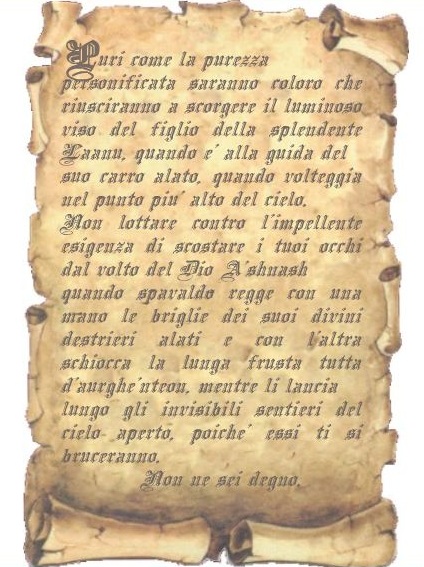 Puri come la purezza
personificata saranno coloro che
riusciranno a scorgere il luminoso
viso del figlio della splendente
Laanu, quando e' alla guida del
suo carro alato, quando volteggia
nel punto piu' alto del cielo.
Non lottare contro l'impellente
esigenza di scostare i tuoi occhi
dal volto del Dio A'shnash
quando spavaldo regge con una
mano le briglie dei suoi divini
destrieri alati e con l'altra
schiocca la lunga frusta tutta
d'aurghe'nteon, mentre li lancia
lungo gli invisibili sentieri del
cielo aperto, poiche' essi ti si
bruceranno.
Non ne sei degno.